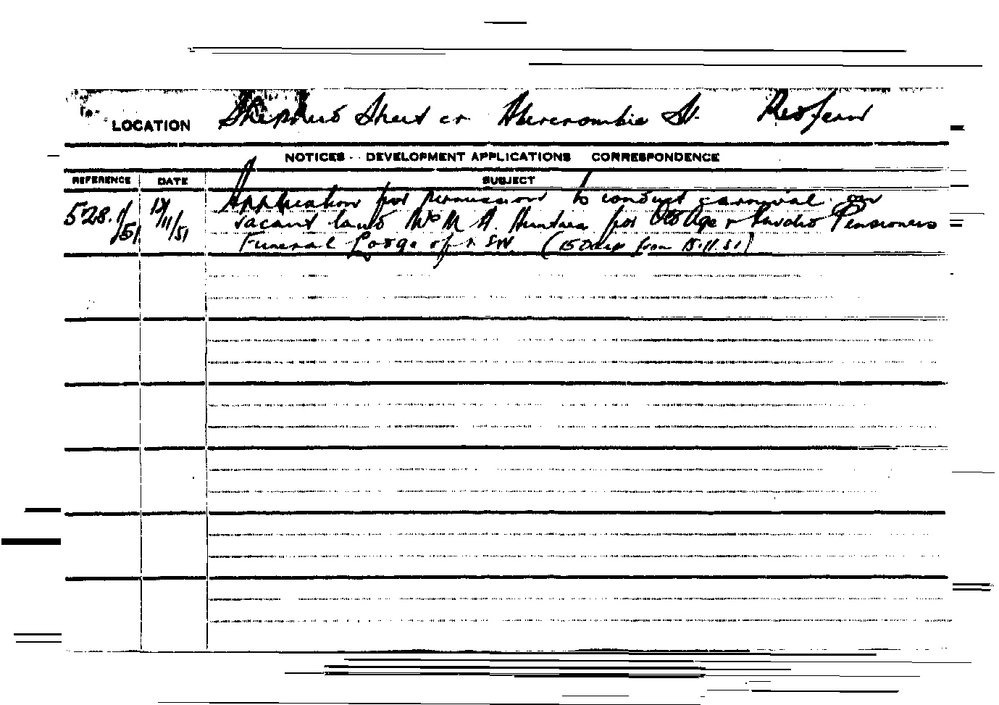 LOCATION Shepherd Street cr Abercrombie St. Redfern
NOTICES - DEVELOPMENT APPLICATIONS CORRESPONDENCE
REFERENCE DATE SUBJECT
528 /51 13/11/51 Application for permission to conduct carnival on
vacant land Mr M A for Old Age & Invalid Pensioners
Funeral Lodge of N SW (15 Days from 15.11.51)